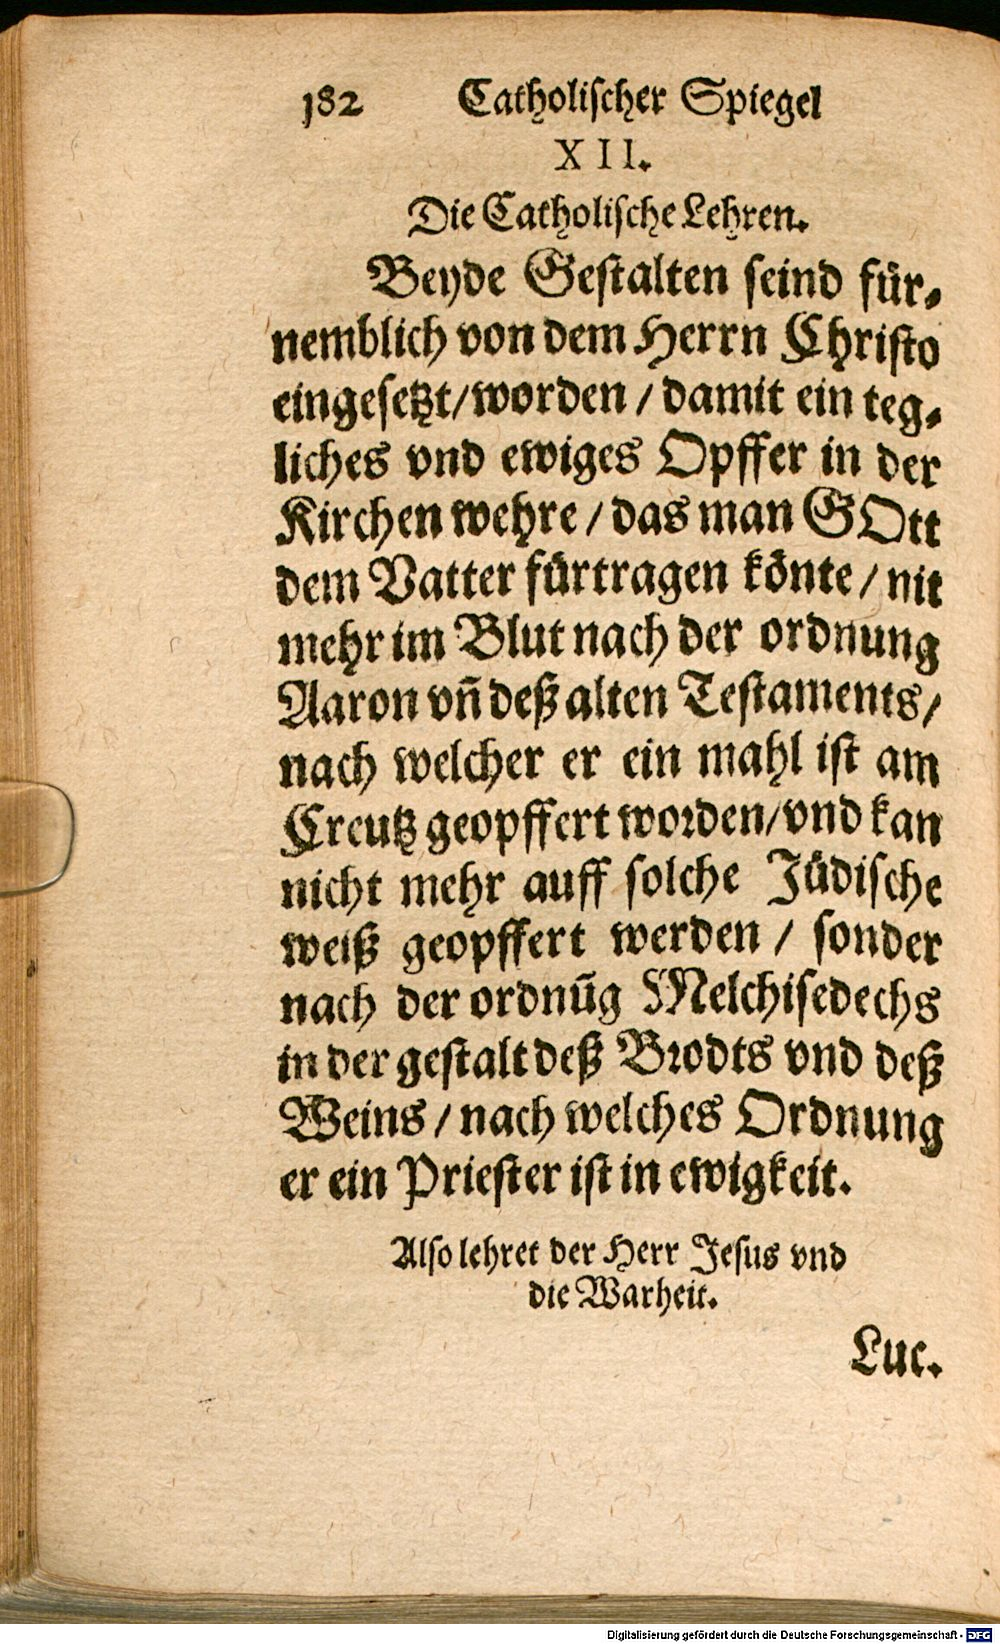 182 Catholischer Spiegel
XII.
Die Catholische Lehren.
Beyde Gestalten seind für-
nemblich von dem Herrn Christo
eingesetzt/worden / damit ein teg-
liches vnd ewiges Opffer in der
Kirchen wehre / das man GOtt
dem Vatter fürtragen könte / nit
mehr im Blut nach der ordnung
Aaron vñ deß alten Testaments/
nach welcher er ein mahl ist am
Creutz geopffert worden/vnd kan
nicht mehr auff solche Jüdische
weiß geopffert werden / sonder
nach der ordnũg Melchisedechs
in der gestalt deß Brodts vnd deß
Weins / nach welches Ordnung
er ein Priester ist in ewigkeit.
Also lehret der Herr Jesus vnd
die Warheit.
Luc.
Digitalisierung gefördert durch die Deutsche Forschungsgemeinschaft - DFG